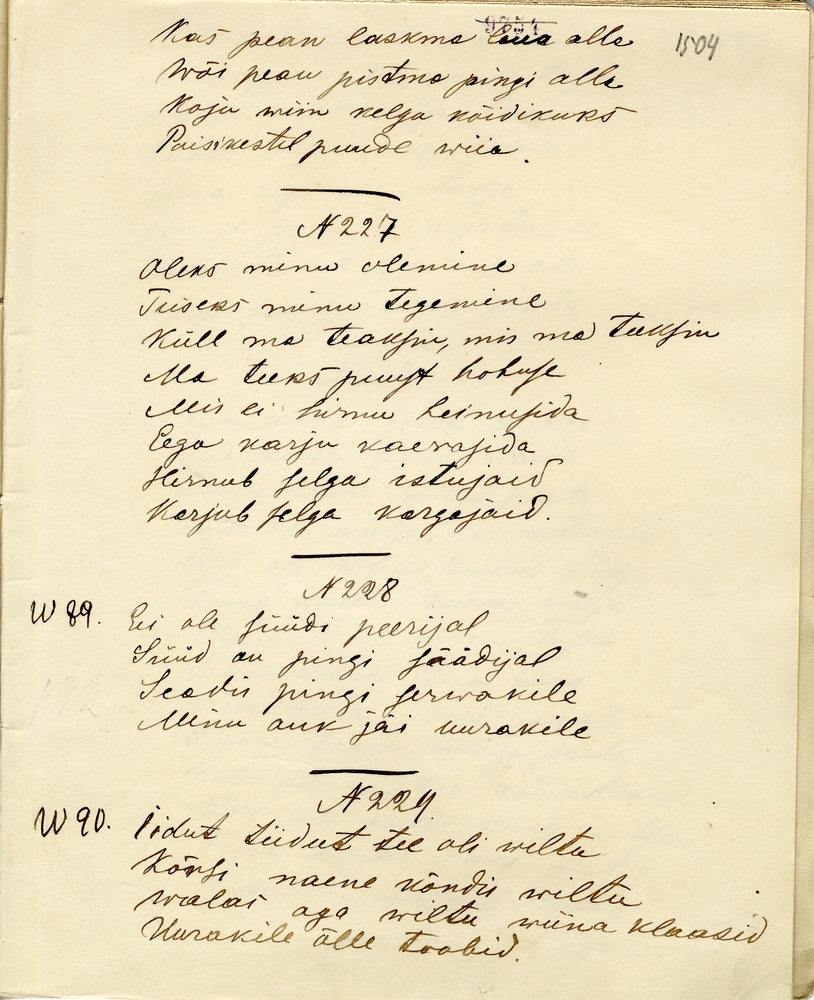 9254
1504
Kas pean laskma laua alla
Wõi pean pistma pingi alla
Koju wiin kelga köidikuks
Paisikestel puude wiia.
N 227
Oleks minu olemine
Tuseks minu tegemine
Küll ma teaksin, mis ma teeksin
Ma teeks puust hobuse
Mis ei hirnu heinusida
Eega karju kaerasida
Hirnub selga istujaid
Karjub selga kargajaid.
N 228
W 89. Ei ole süüdi peerijal
Süüd on pingi säädijal
Seadis pingi serwakile
Minu auk jäi uurakile
N 229.
W 90. Iidut tiidut tee oli wiltu
Kõrtsi naene kõndis wiltu
walas aga wiltu wiina klaasid
Uurakile õlle toobid.